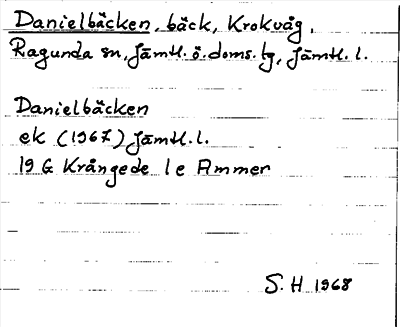 Danielbäcken, bäck, Krokvåg,
Ragunda sn, Jämtl. ö. doms. lg, Jämtl. l.
Danielbäcken
ek (1967) Jämtl. l.
19 G Krångede 1 e Ammer
S. H. 1968